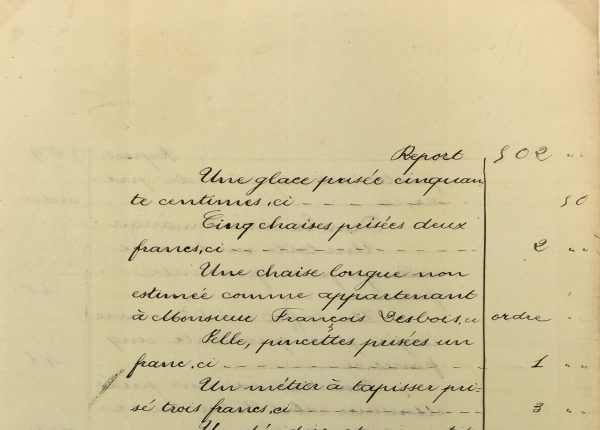 Report 502 " "
Une glace prisée cinquan
te centimes, ci - - - - - - - - 50
Cinq chaises, prisées deux
francs, ci - - - - - - - - - - 2 " "
Une chaise longue non
estimée comme appartenant
à Monsieur François Desbois, ci ordre "
Pelle, pincettes prisées un
franc, ci - - - - - - - - - - 1 " "
Un métier à tapisser pri-
sé trois francs, ci - - - - - - - 3 " "